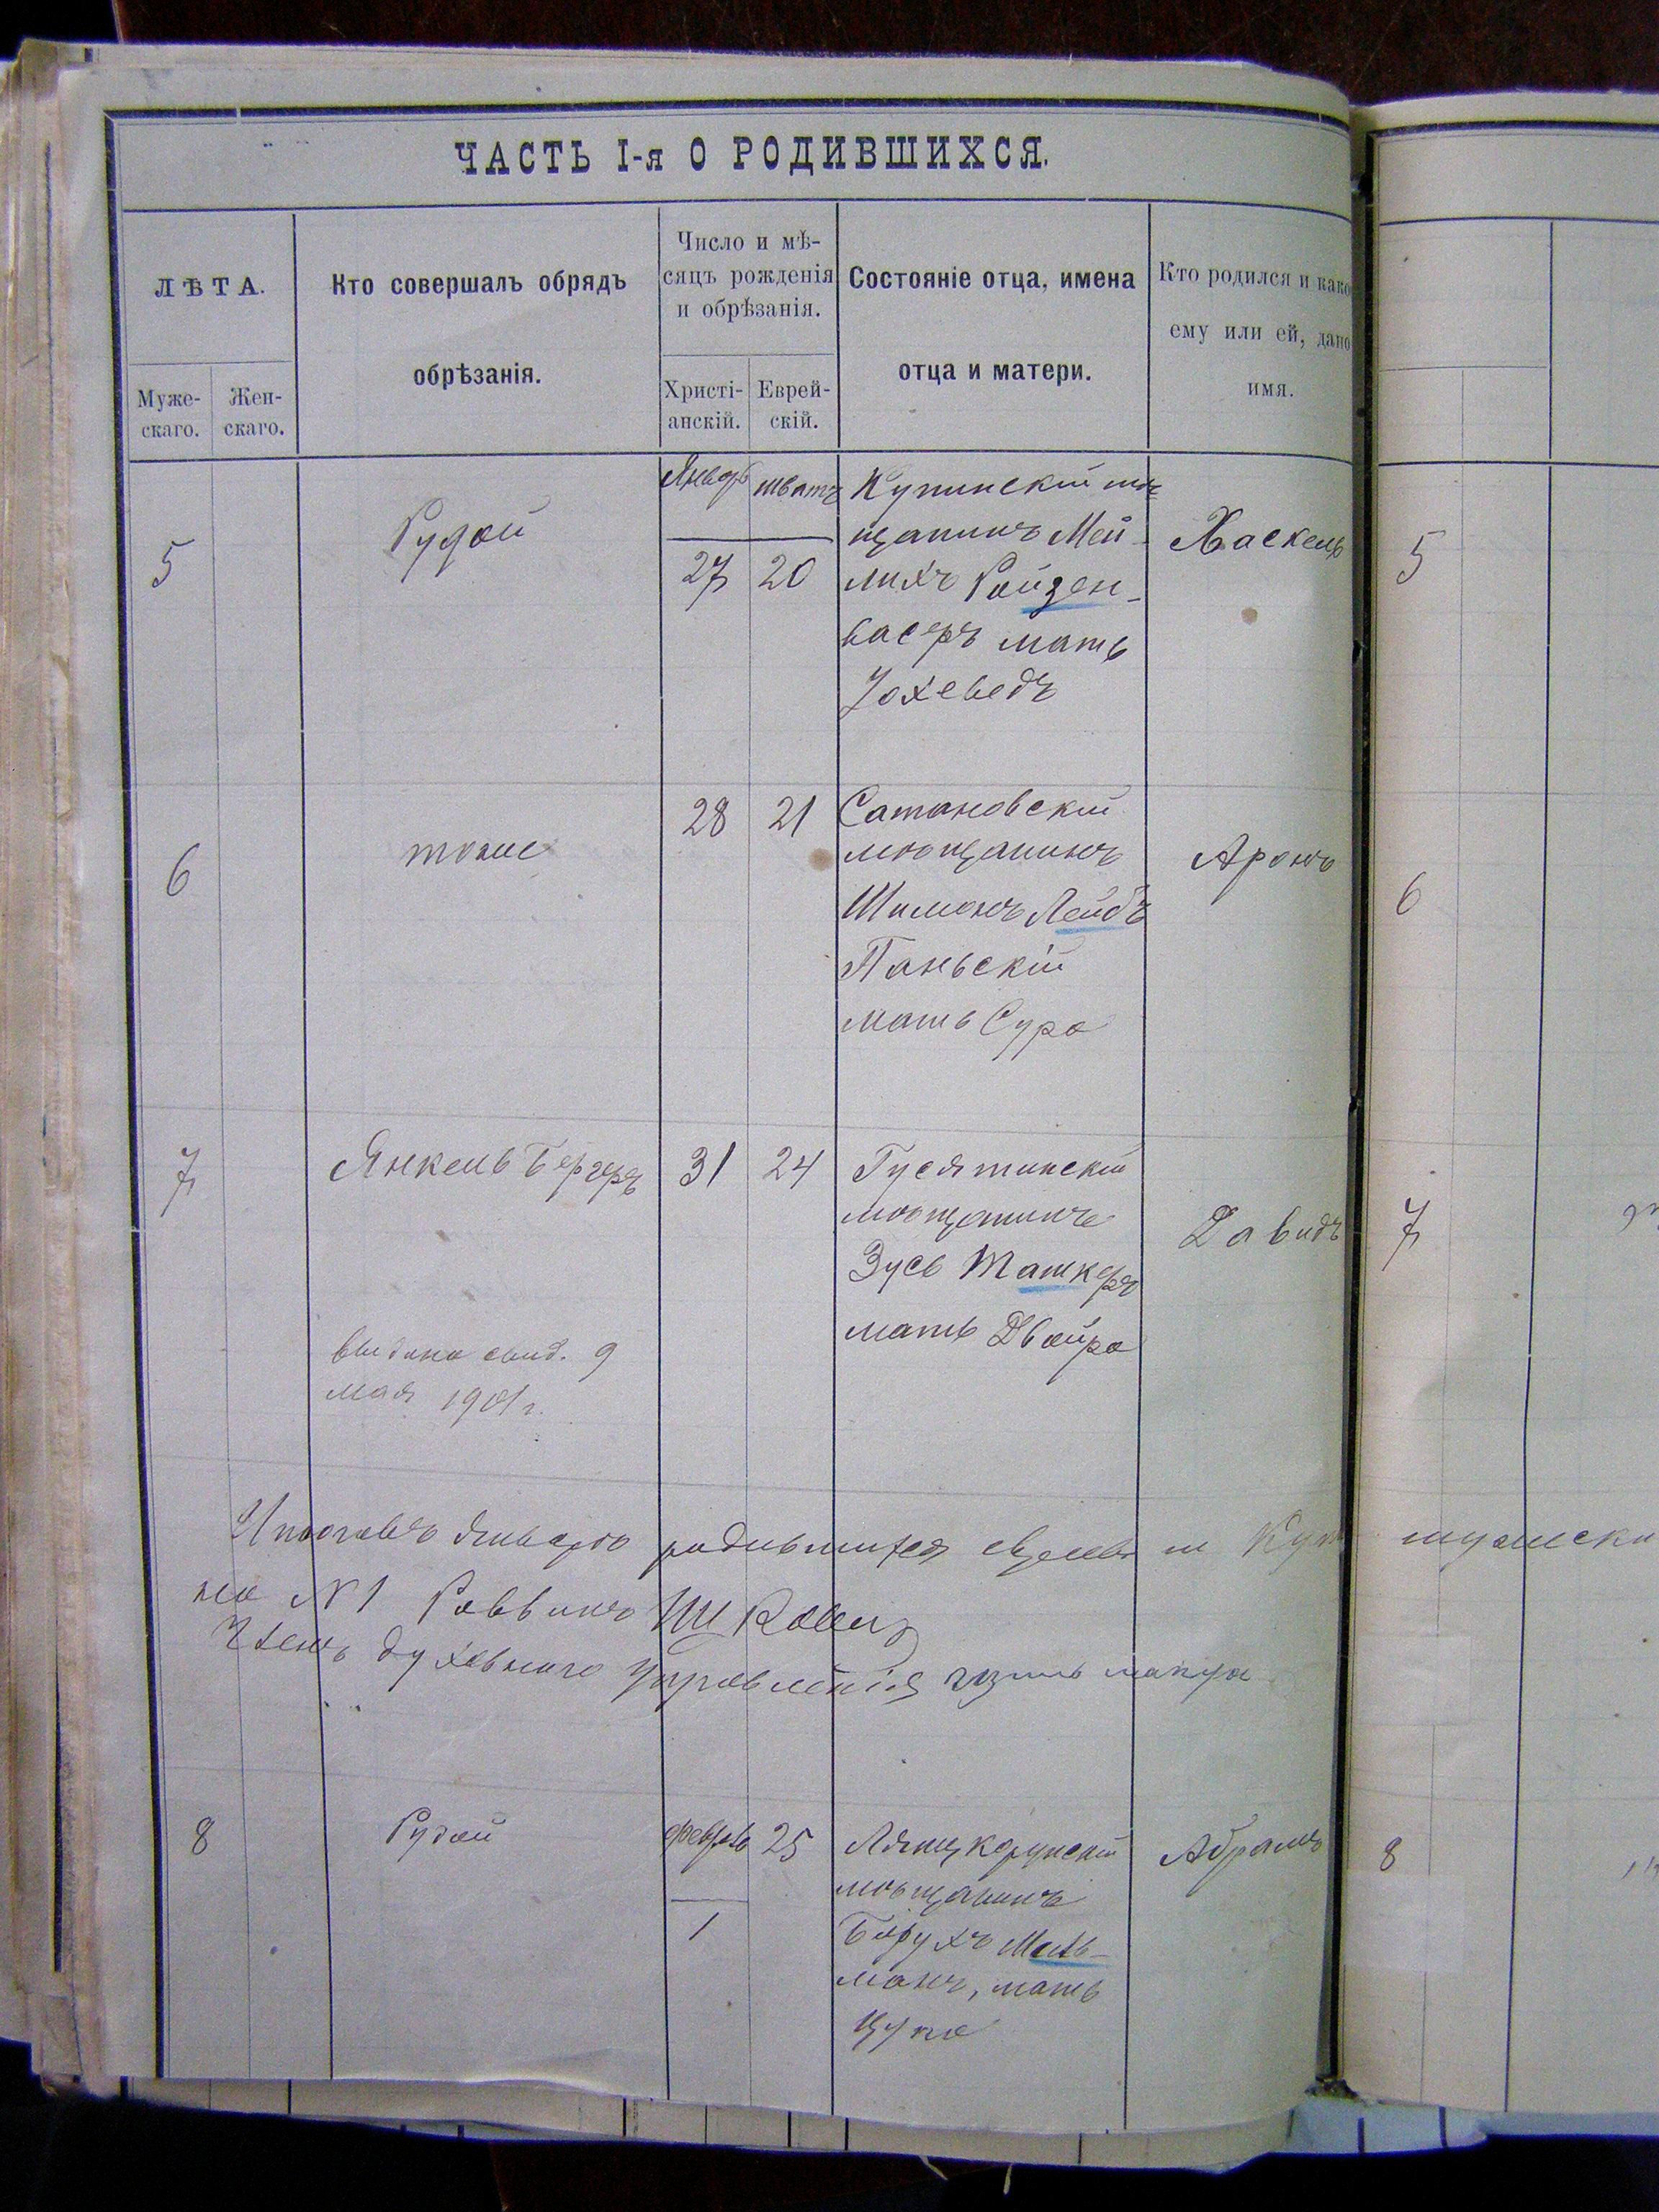 ЧАСТЬ I-я О РОДИВШИХСЯ.
ЛѢТА.
Муже-
скаго.
Жен-
скаго.
Кто совершалъ обрядъ
обрѣзанія.
Число и мѣ-
сяцъ рожденія
и обрѣзанія.
Христі-
анскій.
Еврей-
скій.
Состояніе отца, имена
отца и матери.
Кто родился и како
ему или ей, дано
имя.
5
Рудой
Январь
27
шватъ
20
Купинскій мѣ
щанинъ Мей-
лихъ Ройзен-
васеръ мать
Іохеведъ
Хаскель
5
6
тоже
28
21
Сатановскій
мѣщанинъ
Шимонъ Лейбъ
Паньскій
мать Сура
Аронъ
6
7
Янкель Бергеръ
31
24
Гусятинскій
мѣщанинъ
Зусь Ташкеръ
мать Двойра
Давидъ
7
выдано свид. 9
мая 1901 г.
родившихся
мужеска
№ 1 Раввинъ
Членъ духовнаго Управленія
8
Рудой
Февраль
1
25
Лянцкорунскій
мѣщанинъ
Борухъ Мель-
манъ, мать
Цупа
Абрамъ
8